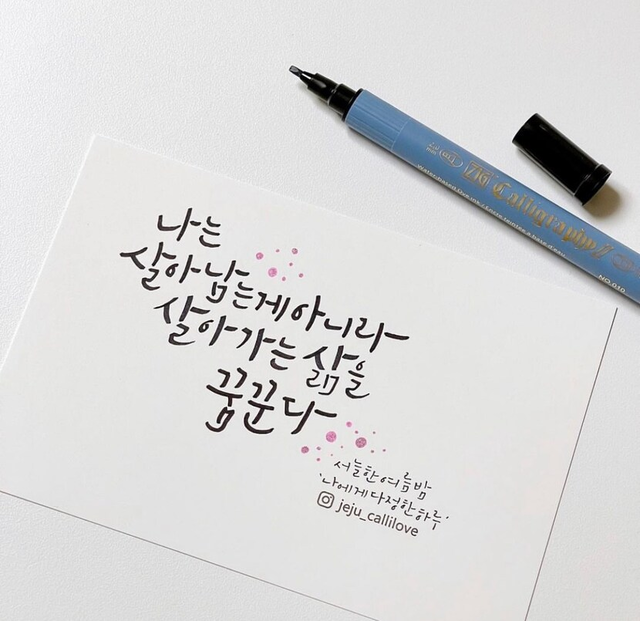 나는
살아남는게 아니라
살아가는 삶을
꿈꾼다
서늘한여름밤
'나에게 다정한 하루'
jeju_callilove
ZIG Calligraphy
NO.010